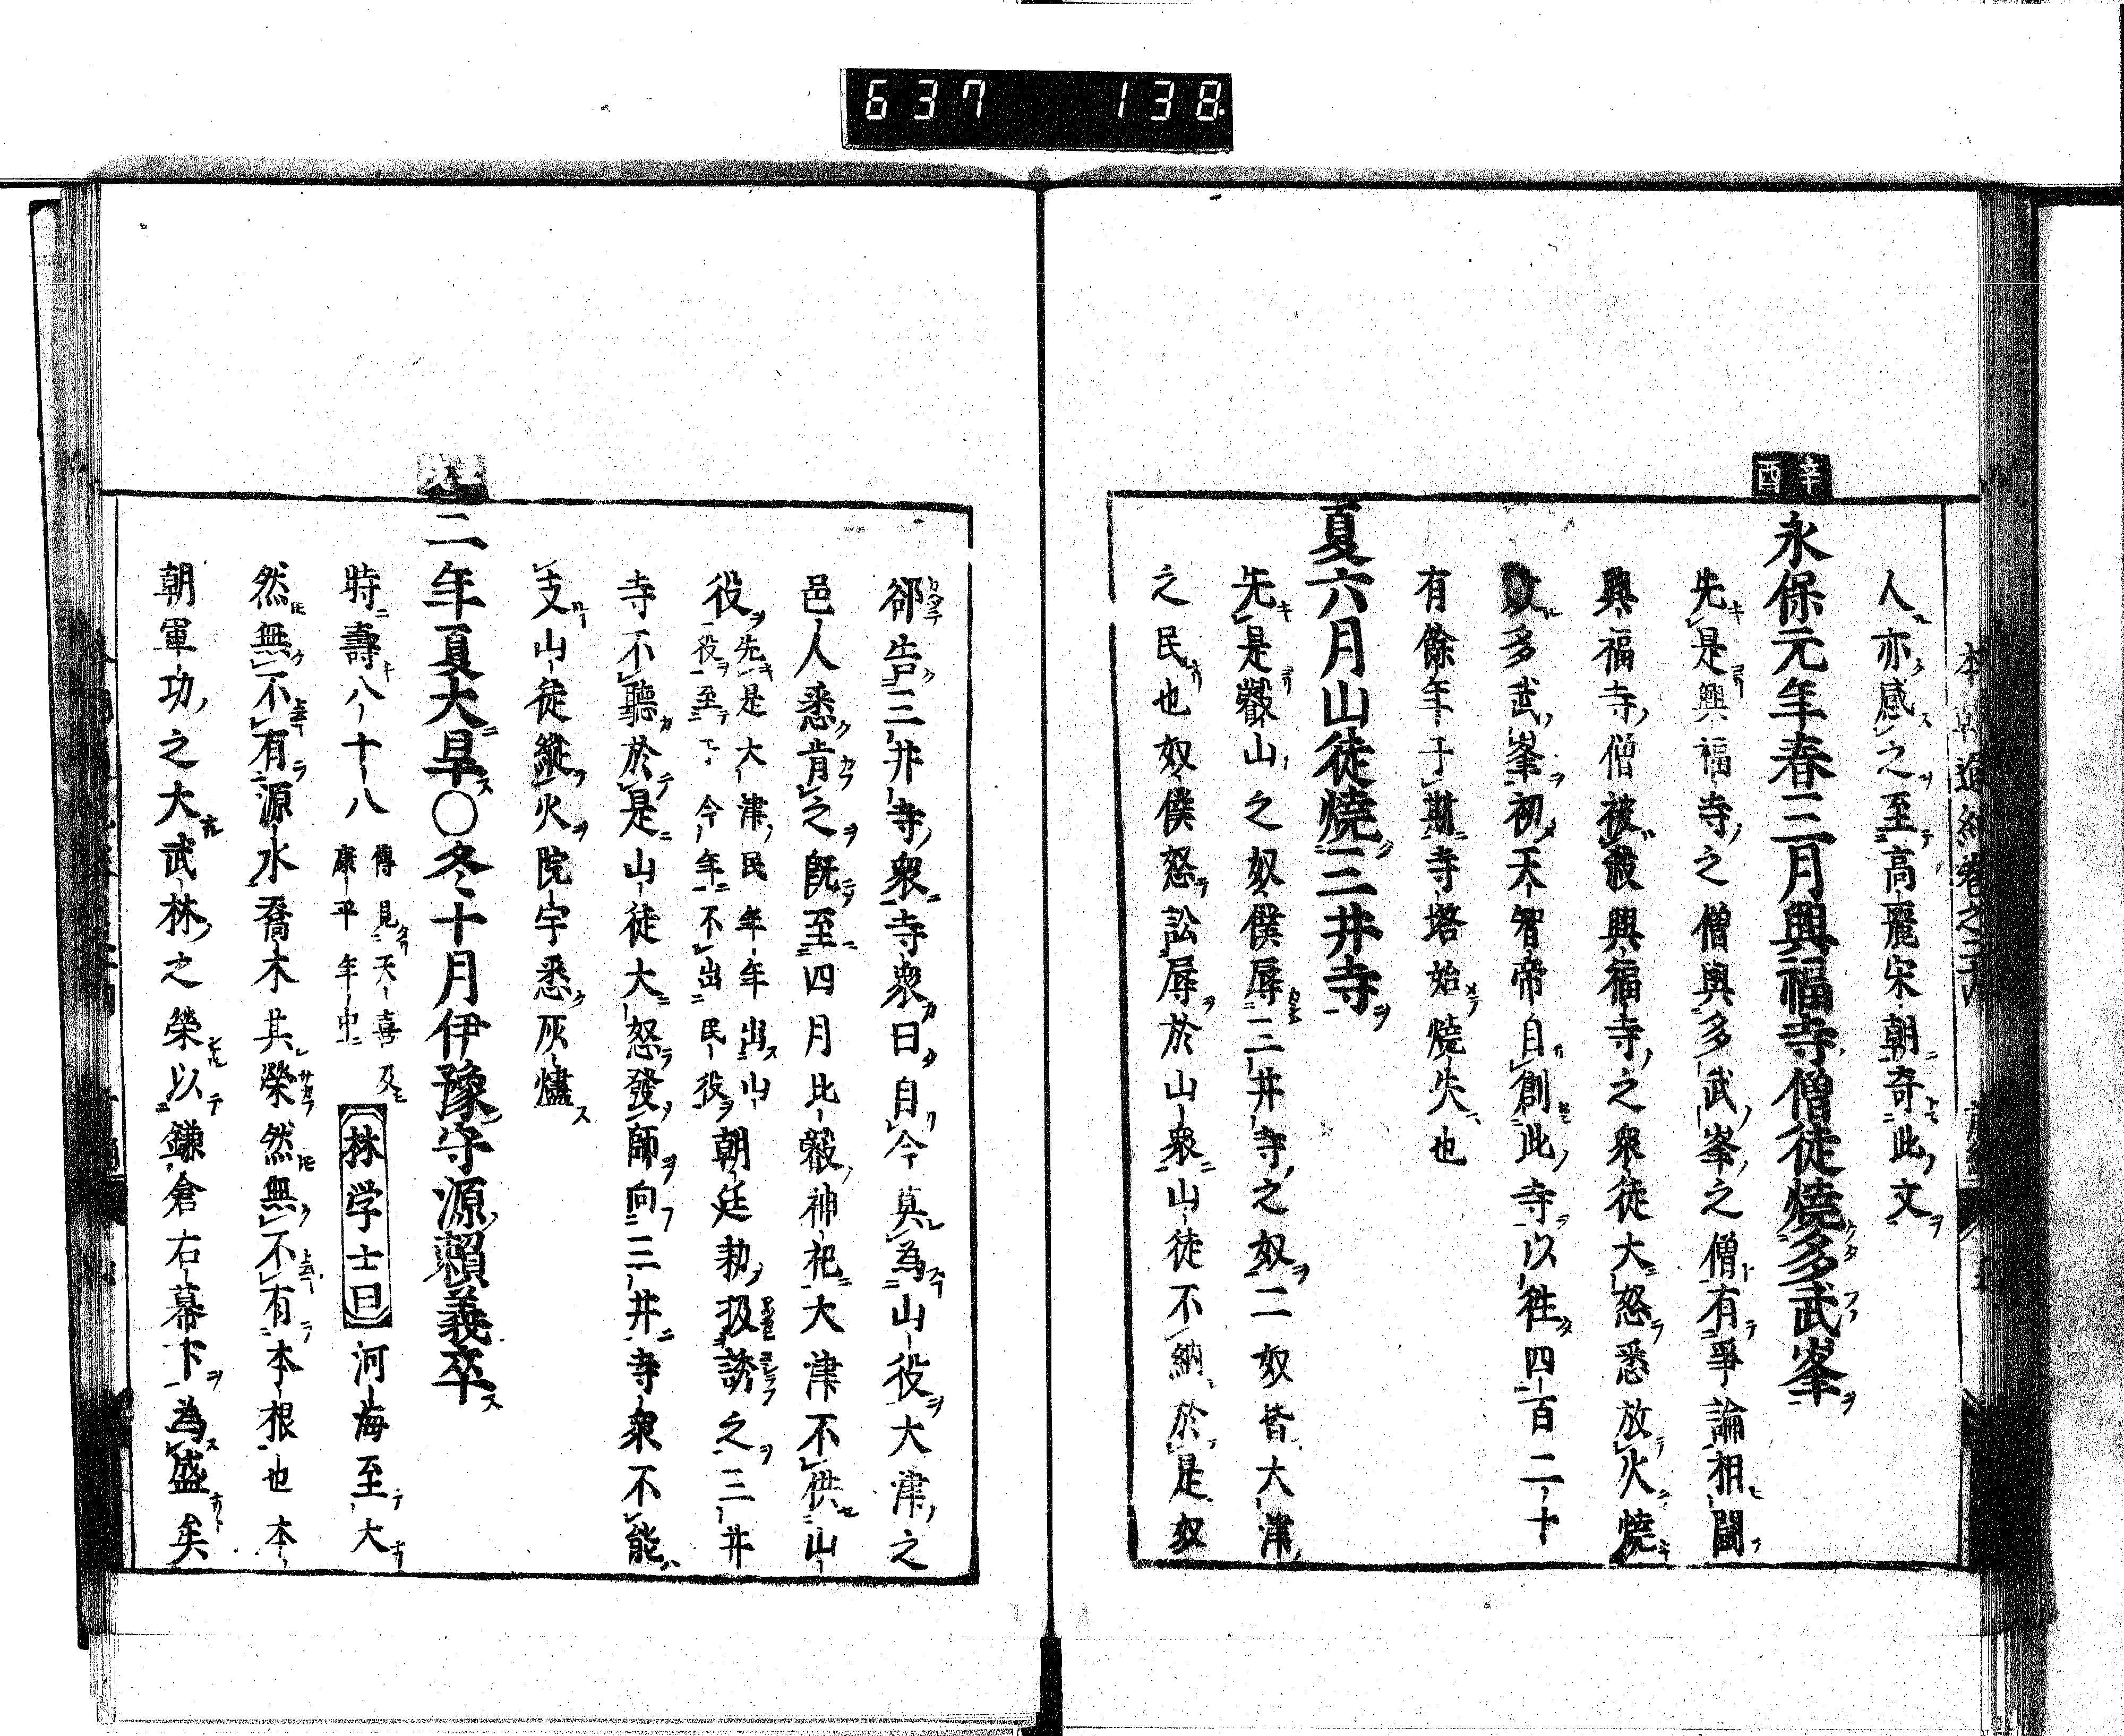 637 138
人亦感之至高麗宋朝奇此文
辛酉
永保元年春三月興福寺僧徒燒多武峯
先是興福寺之僧與多武峯之僧有爭論相鬪
興福寺僧被戕興福寺之衆徒大怒悉放火燒
多武峯初天智帝自創此寺以徃四百二十
有餘年于斯寺塔始燒失也
夏六月山徒燒三井寺
先是叡山之奴僕辱三井寺之奴二奴皆大津
之民也奴僕怒訟辱於山衆山徒不納於是奴
郤告三井寺衆寺衆曰自今莫為山役大津之
邑人悉肯之既至四月比叡神祀大津不供山
役先是大津民年年出山役至今年不出民役朝廷勑扱誘之三井
寺不聽於是山徒大怒發師向三井寺衆不能
支山徒縱火院宇悉灰燼
二年夏大旱〇冬十月伊豫守源賴義卒
時壽八十八傳見天喜及康平年中林学士曰河海至大
然無不有源水喬木其榮然無不有本根也本
朝軍功之大武林之榮以鎌倉右幕下為盛矣